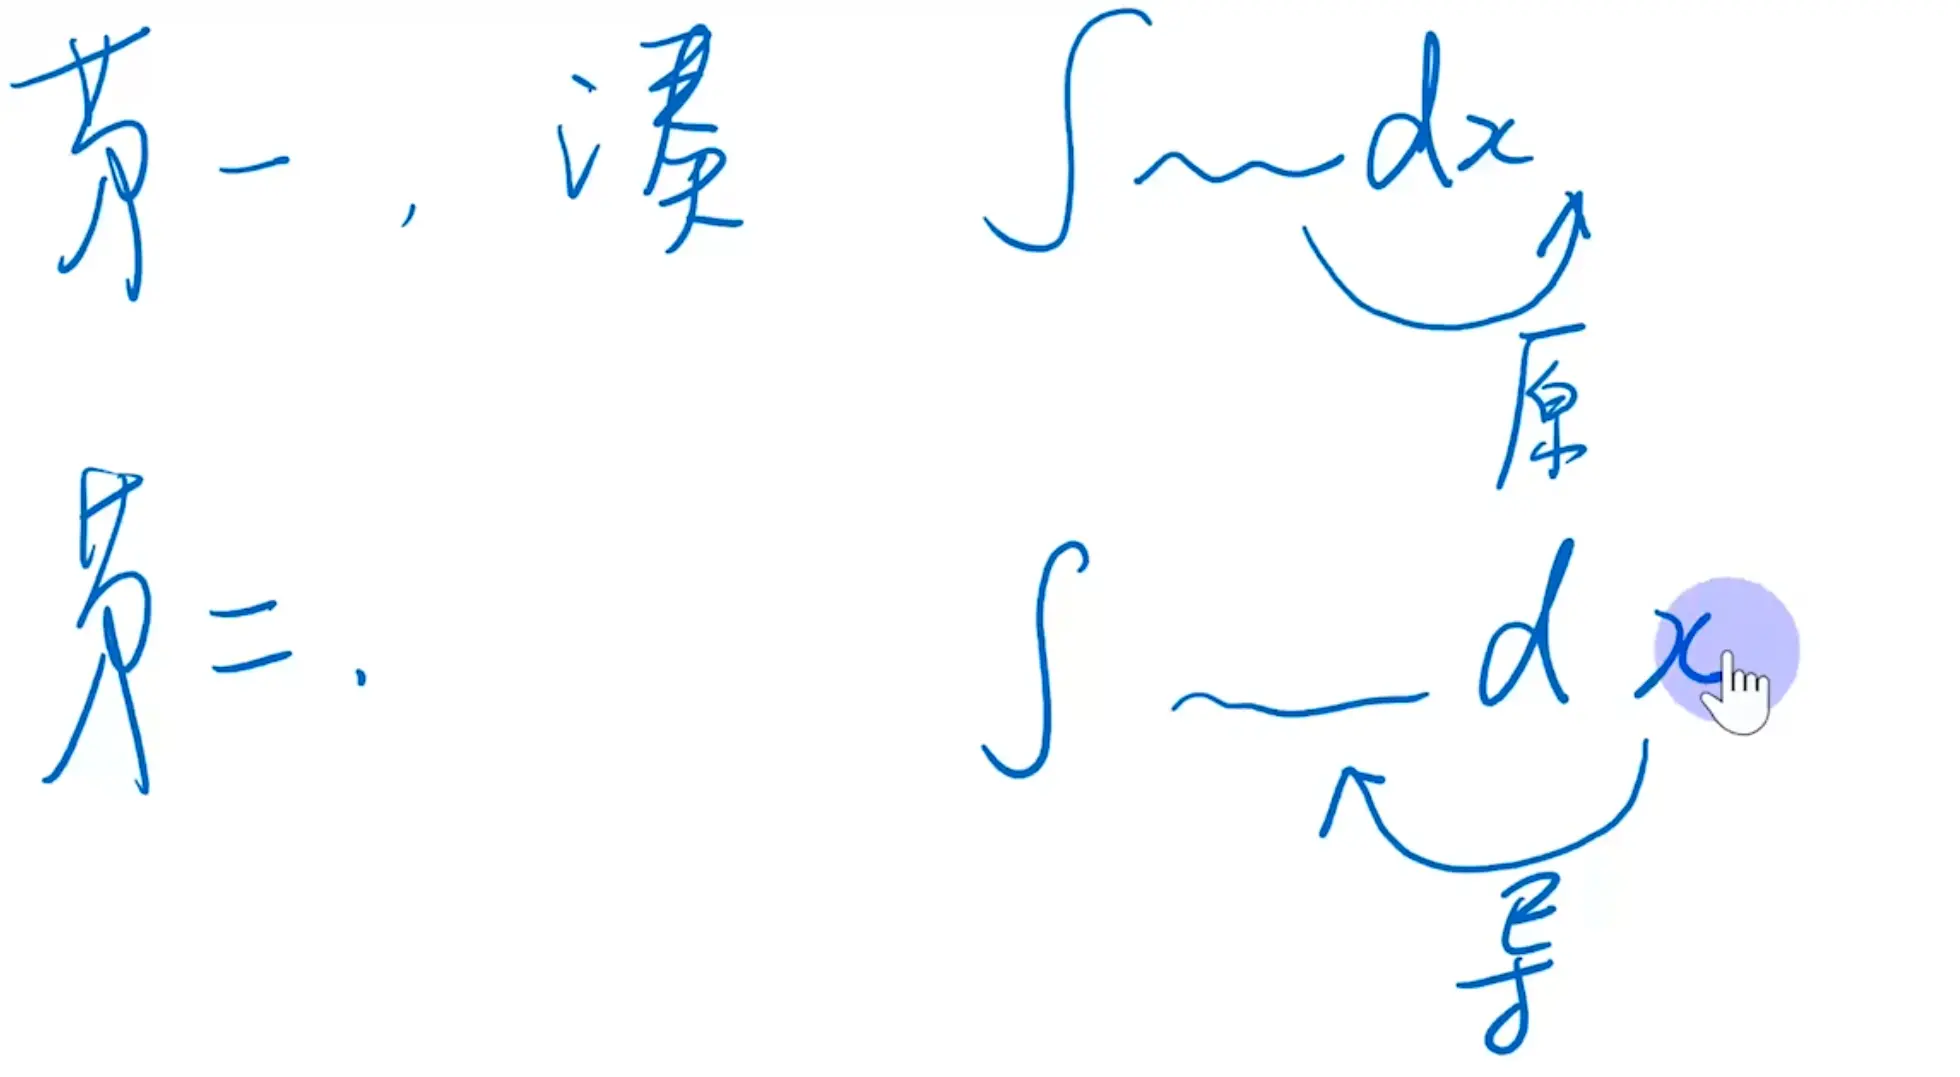 第一, 凑 ∫~~~dx
原
第二. ∫~~~dx
导